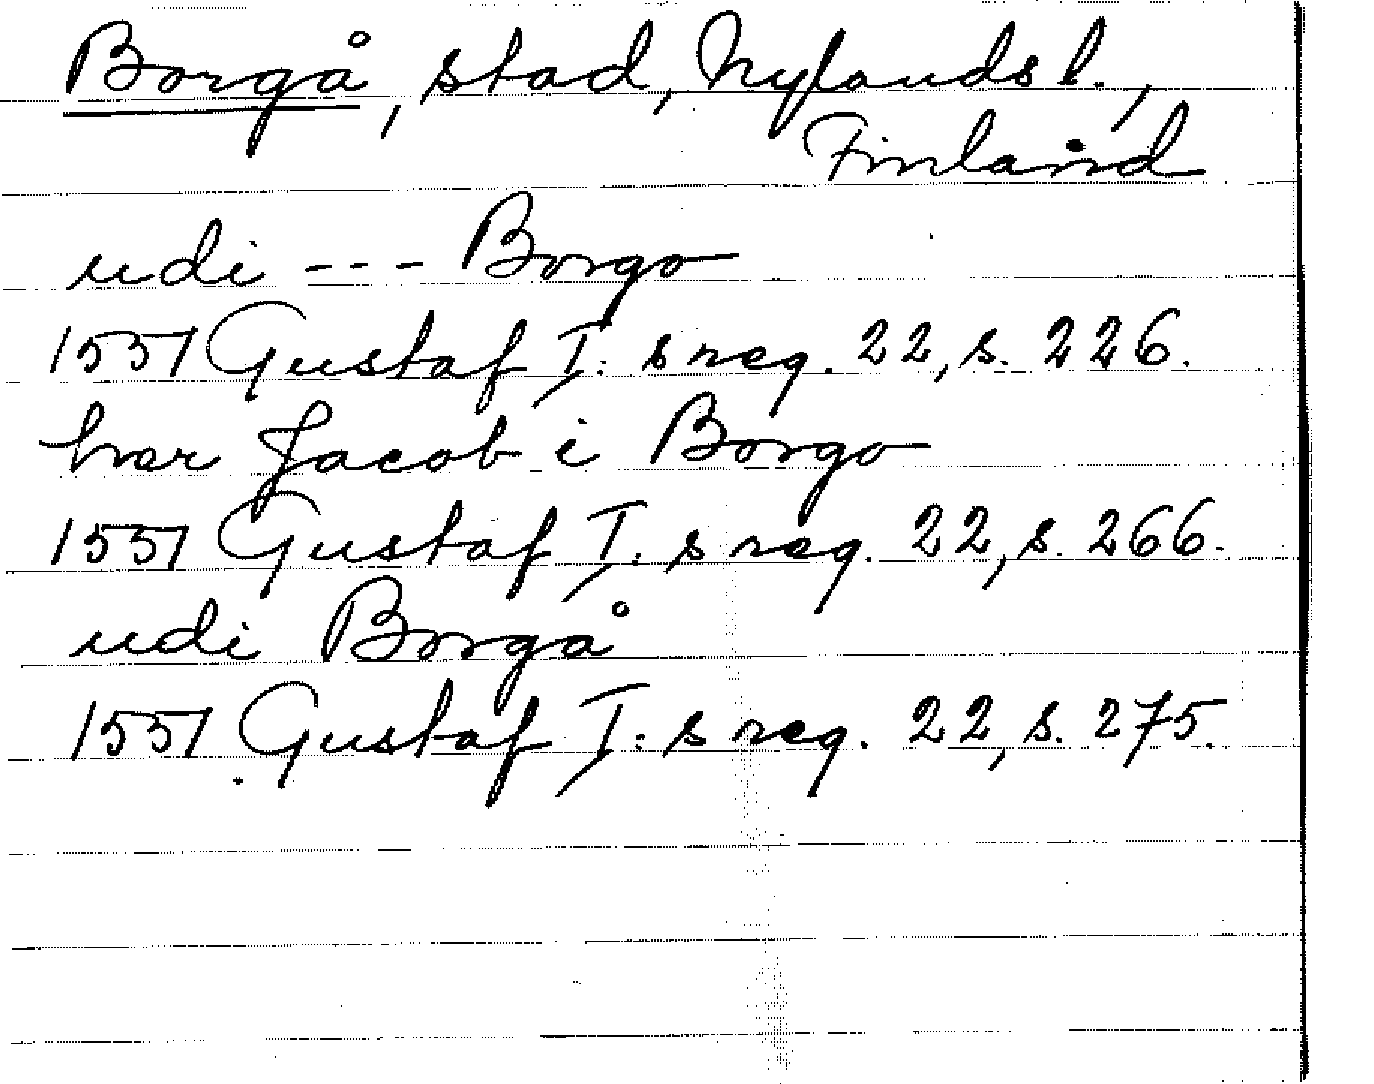 Borgå, stad, Nylands l.,
Finland
udi --- Borgo
1551 Gustaf I:s reg. 22, s. 226.
her Jacob i Borgo
1551 Gustaf I:s reg. 22, s. 266.
udi Borgå
1551 Gustaf I:s reg. 22, s. 275.